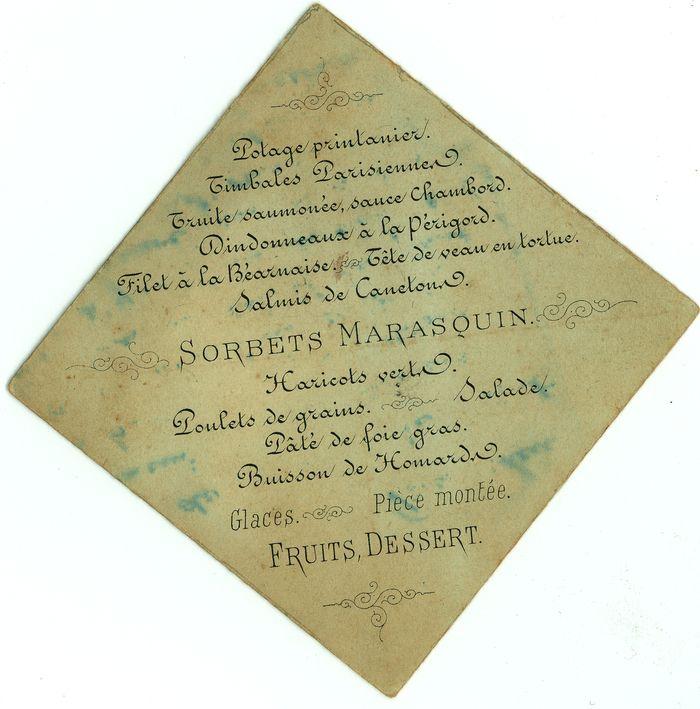 Potage printanier.
Timbales Parisiennes.
Truite saumonée, sauce Chambord.
Dindonneaux à la Périgord.
Filet à la Béarnaise. Tête de veau en tortue.
Salmis de Canetons.
SORBETS MARASQUIN.
Haricots verts.
Poulets de grains. Salade.
Pâté de foie gras.
Buisson de Homards.
Glaces. Pièce montée.
FRUITS, DESSERT.